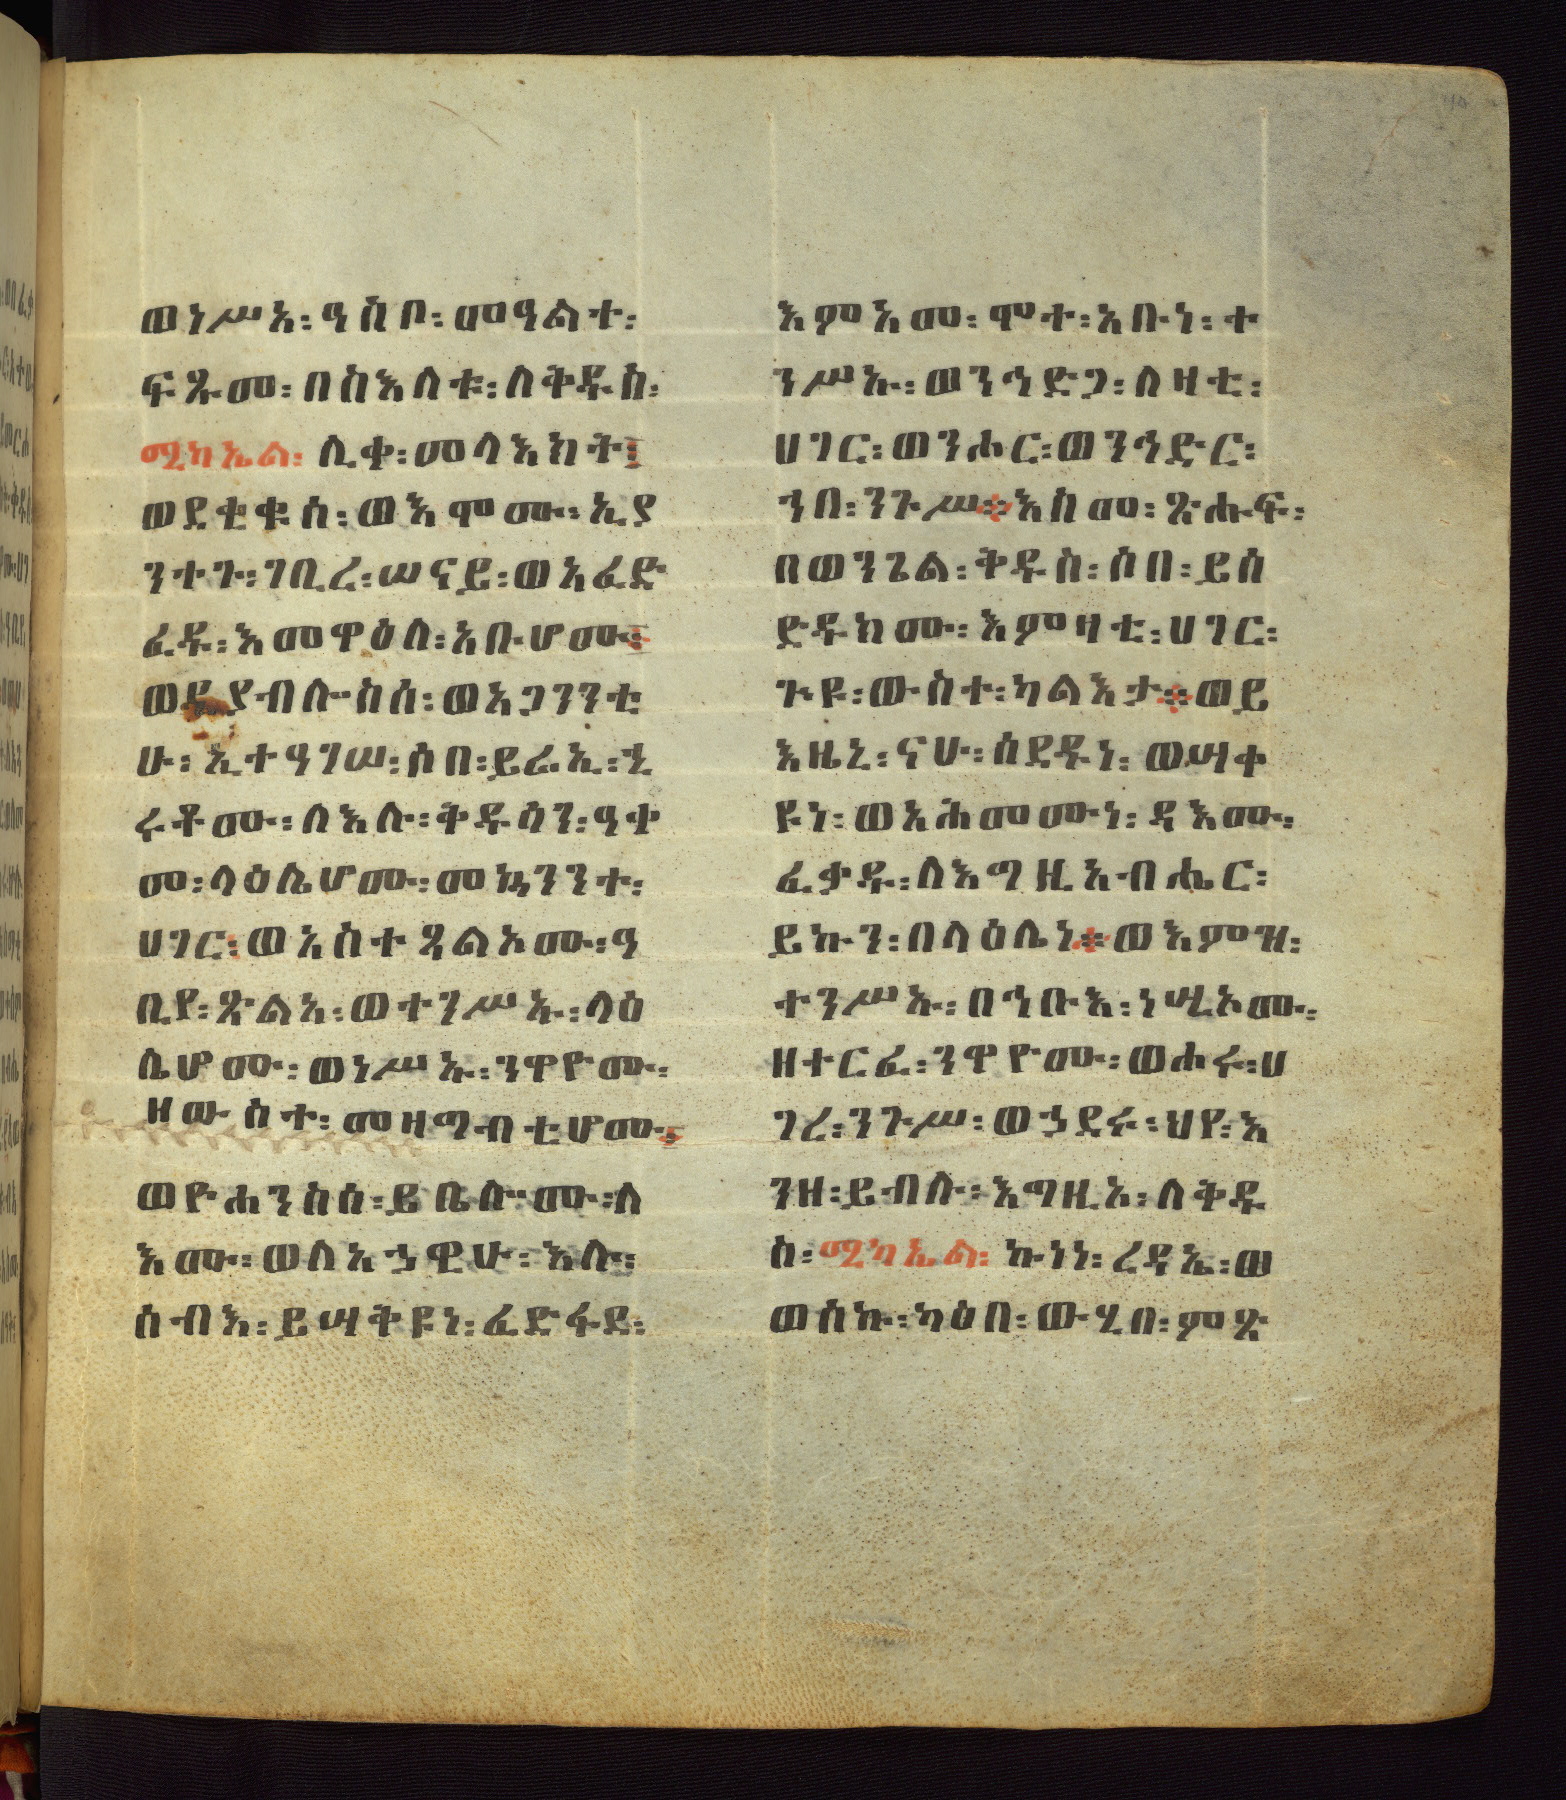 ወነሥአ፡ ዓስቦ፡ መዓልተ፡
ፍጹመ፡ በስእለቱ፡ ለቅዱስ፡
ሚካኤል፡ ሊቀ፡ መላእክት፤
ወደቂቁሰ፡ ወእሞሙ፡ ኢያ
ንተጉ፡ ገቢረ፡ ሠናይ፡ ወአፈድ
ፈዱ፡ እመዋዕለ፡ አቡሆሙ፤
ወዲያብሎስሰ፡ ወአጋንንቲ
ሁ፡ ኢተዓገሠ፡ ሶበ፡ ይሬኢ፡ ኂ
ሩቶሙ፡ ለእሉ፡ ቅዱሳን፡ ዓቀ
መ፡ ላዕሌሆሙ፡ መኳንንተ፡
ሀገር፡ ወአስተጻልኦሙ፡ ዓ
ቢየ፡ ጽልአ፡ ወተንሥኡ፡ ላዕ
ሌሆሙ፡ ወነሥኡ፡ ንዋዮሙ፡
ዘውስተ፡ መዛግብቲሆሙ፤
ወዮሐንስሰ፡ ይቤሎሙ፡ ለ
እሙ፡ ወለአኃዊሁ፡ እሉ፡
ሰብእ፡ ይሣቅዩነ፡ ፈድፋደ፡
እምአመ፡ ሞተ፡ አቡነ፡ ተ
ንሥኡ፡ ወንኅድጋ፡ ለዛቲ፡
ሀገር፡ ወንሐር፡ ወንኅድር፡
ኀበ፡ ንጉሥ። እስመ፡ ጽሑፍ፡
በወንጌል፡ ቅዱስ፡ ሶበ፡ ይሰ
ድዱክሙ፡ እምዛቲ፡ ሀገር፡
ጉዩ፡ ውስተ፡ ካልእታ። ወይ
እዜኒ፡ ናሁ፡ ሰደዱነ፡ ወሣቀ
ዩነ፡ ወአሕመሙነ፡ ዳእሙ፡
ፈቃዱ፡ ለእግዚአብሔር፡
ይኩን፡ በላዕሌነ። ወእምዝ፡
ተንሥኡ፡ በኅቡእ፡ ነሢኦሙ፡
ዘተርፈ፡ ንዋዮሙ፡ ወሐሩ፡ ሀ
ገረ፡ ንጉሥ፡ ወኃደሩ፡ ህየ፡ እ
ንዘ፡ ይብሉ፡ እግዚአ፡ ለቅዱ
ስ፡ ሚካኤል፡ ኩነነ፡ ረዳኤ፡ ወ
ወሰኩ፡ ካዕበ፡ ውሂበ፡ ምጽ